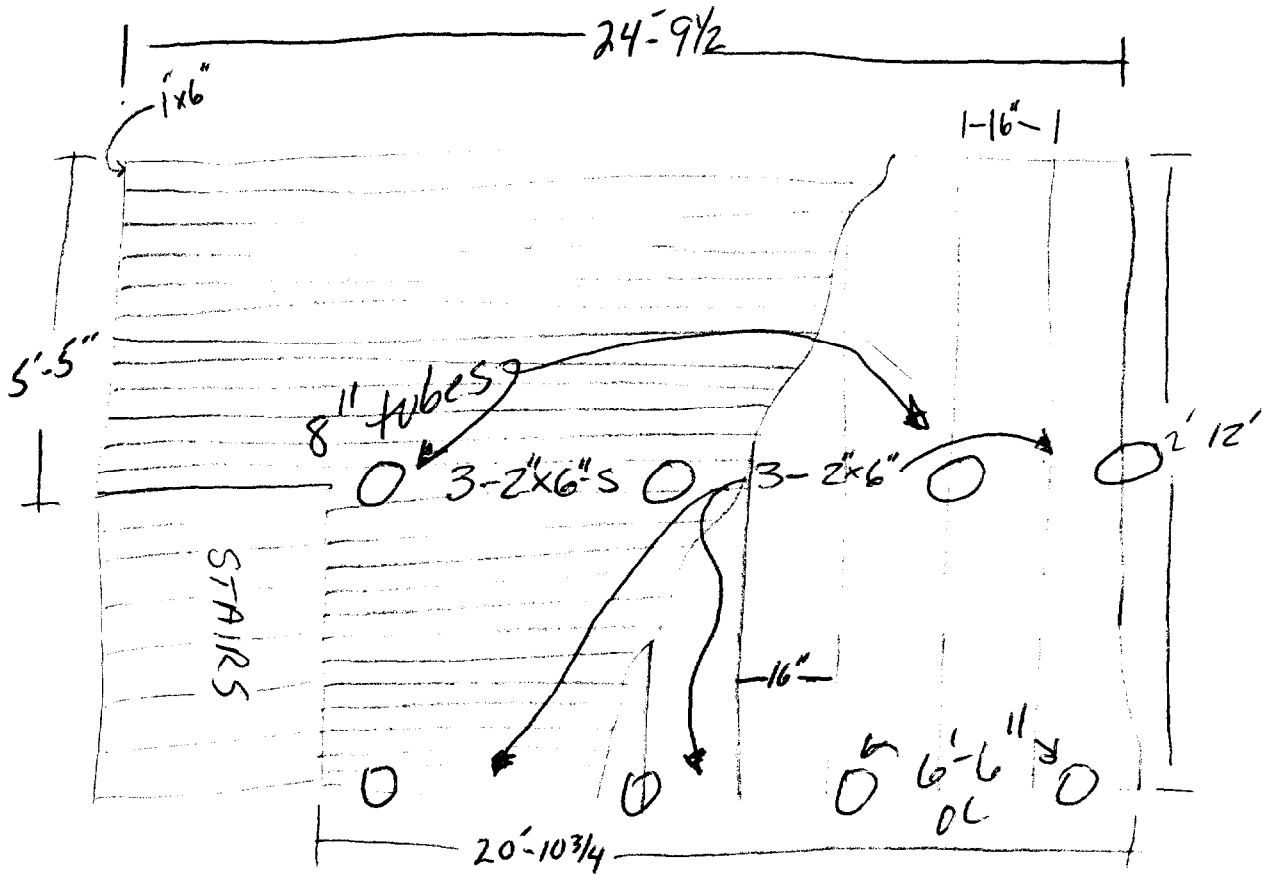 24'-9 1/2
1"x6"
1-16"-1
5'-5"
8" tubes
3-2"x6"-s
3-2"x6"
2' 12'
STAIRS
-16"-
6'-6"
OC
20'-10 3/4